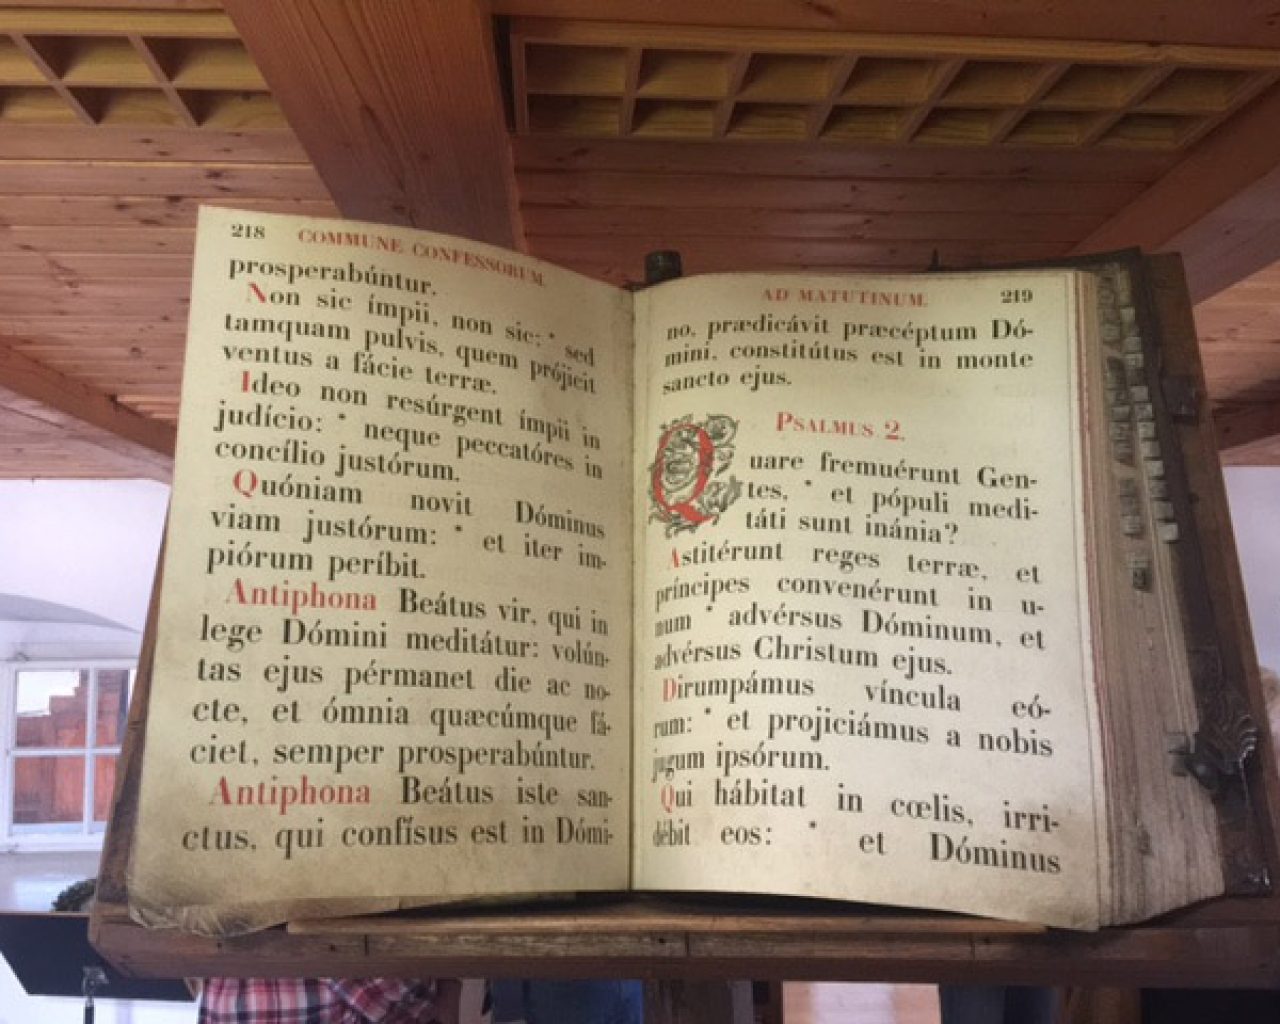 218 COMMUNE CONFESSORUM.
prosperabúntur.
Non sic ímpii, non sic: * sed
tamquam pulvis, quem prójicit
ventus a fácie terræ.
Ideo non resúrgent ímpii in
judício: * neque peccatóres in
concílio justórum.
Quóniam novit Dóminus
viam justórum: * et iter im-
piórum períbit.
Antiphona Beátus vir, qui in
lege Dómini meditátur: volún-
tas ejus pérmanet die ac no-
cte, et ómnia quæcúmque fá-
ciet, semper prosperabúntur.
Antiphona Beátus iste san-
ctus, qui confísus est in Dómi-
AD MATUTINUM. 219
no, prædicávit præcéptum Dó-
mini, constitútus est in monte
sancto ejus.
PSALMUS 2.
Quare fremuérunt Gen-
tes, * et pópuli medi-
táti sunt inánia?
Astitérunt reges terræ, et
príncipes convenérunt in u-
num * advérsus Dóminum, et
advérsus Christum ejus.
Dirumpámus víncula eó-
rum: * et projiciámus a nobis
jugum ipsórum.
Qui hábitat in cœlis, irri-
débit eos: * et Dóminus